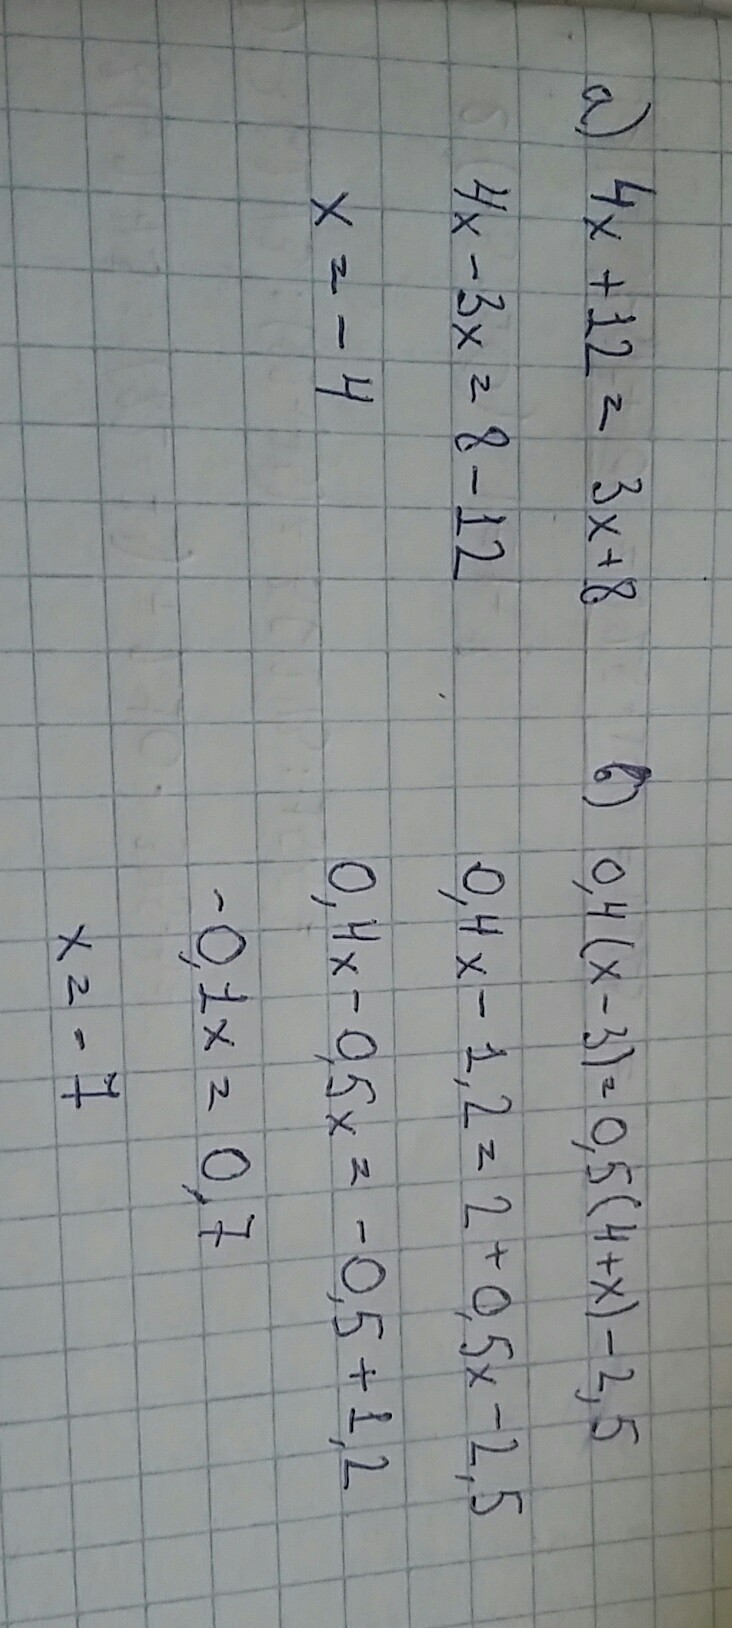 а) 4x + 12 = 3x + 8
4x - 3x = 8 - 12
x = - 4
в) 0,4(x - 3) = 0,5(4 + x) - 2,5
0,4x - 1,2 = 2 + 0,5x - 2,5
0,4x - 0,5x = - 0,5 + 1,2
- 0,1x = 0,7
x = - 7